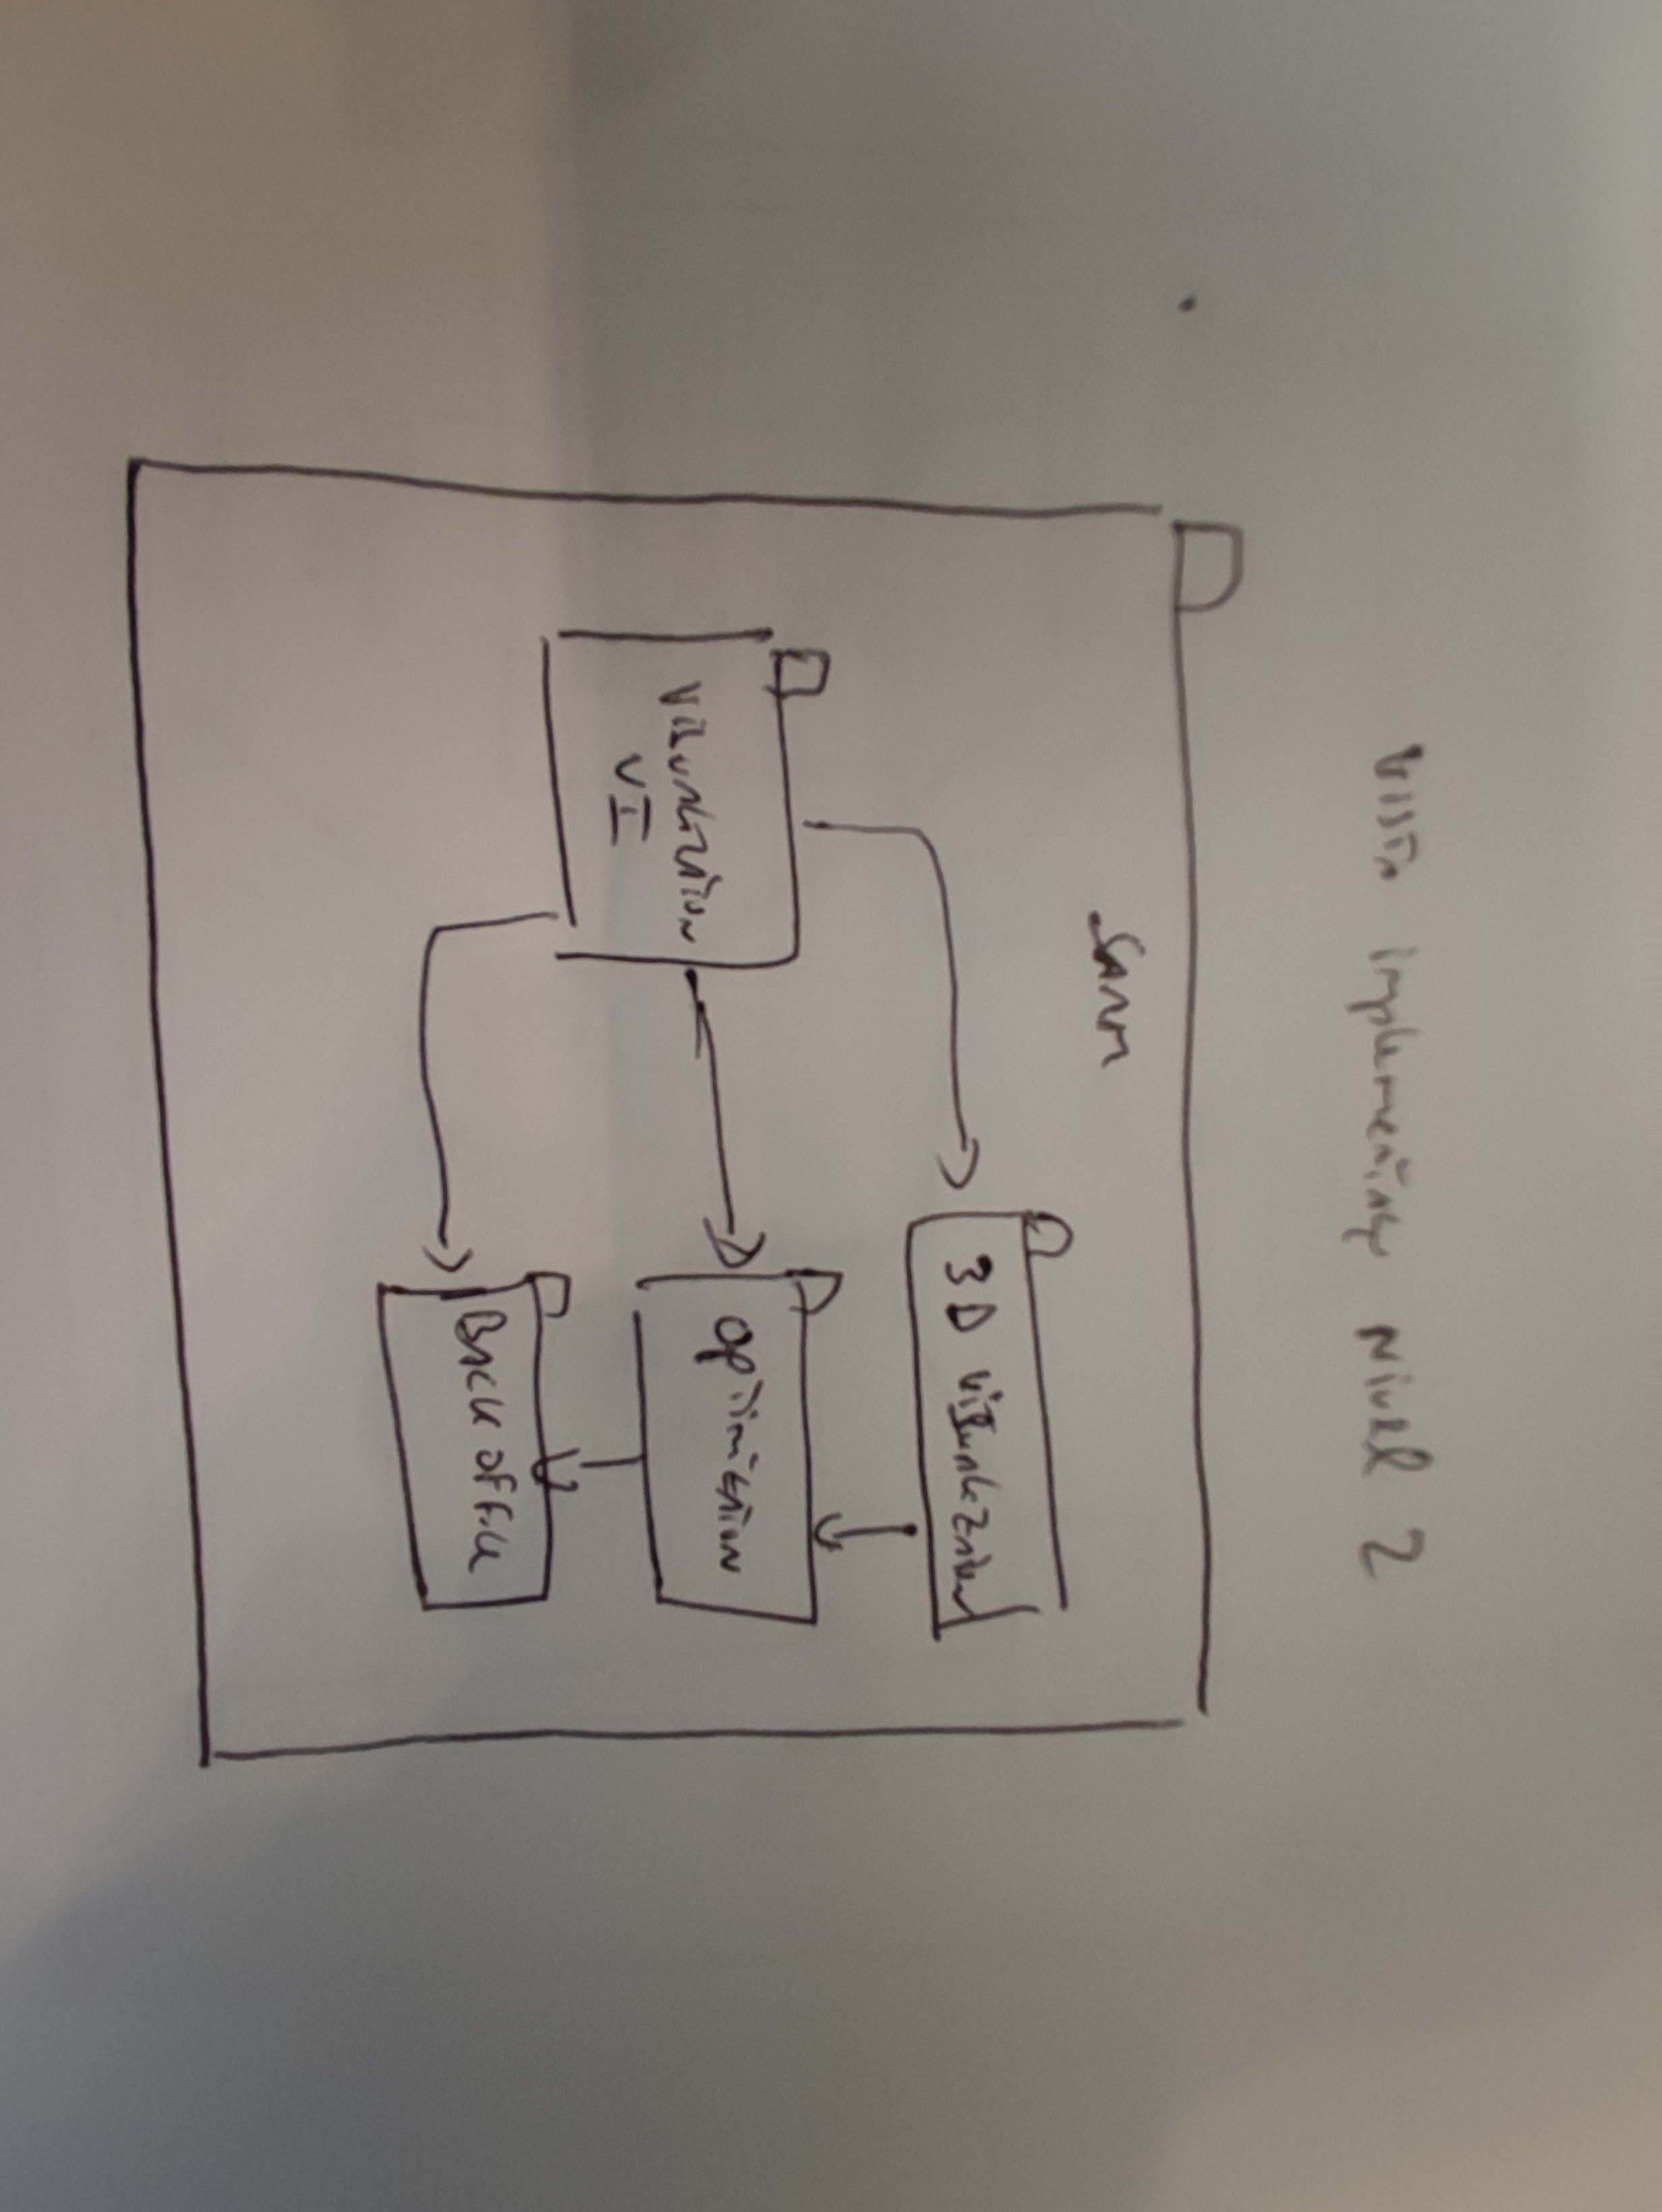 Vista implementação Nivel 2
Visualization
UI
3D Visualization
Optimization
Back office